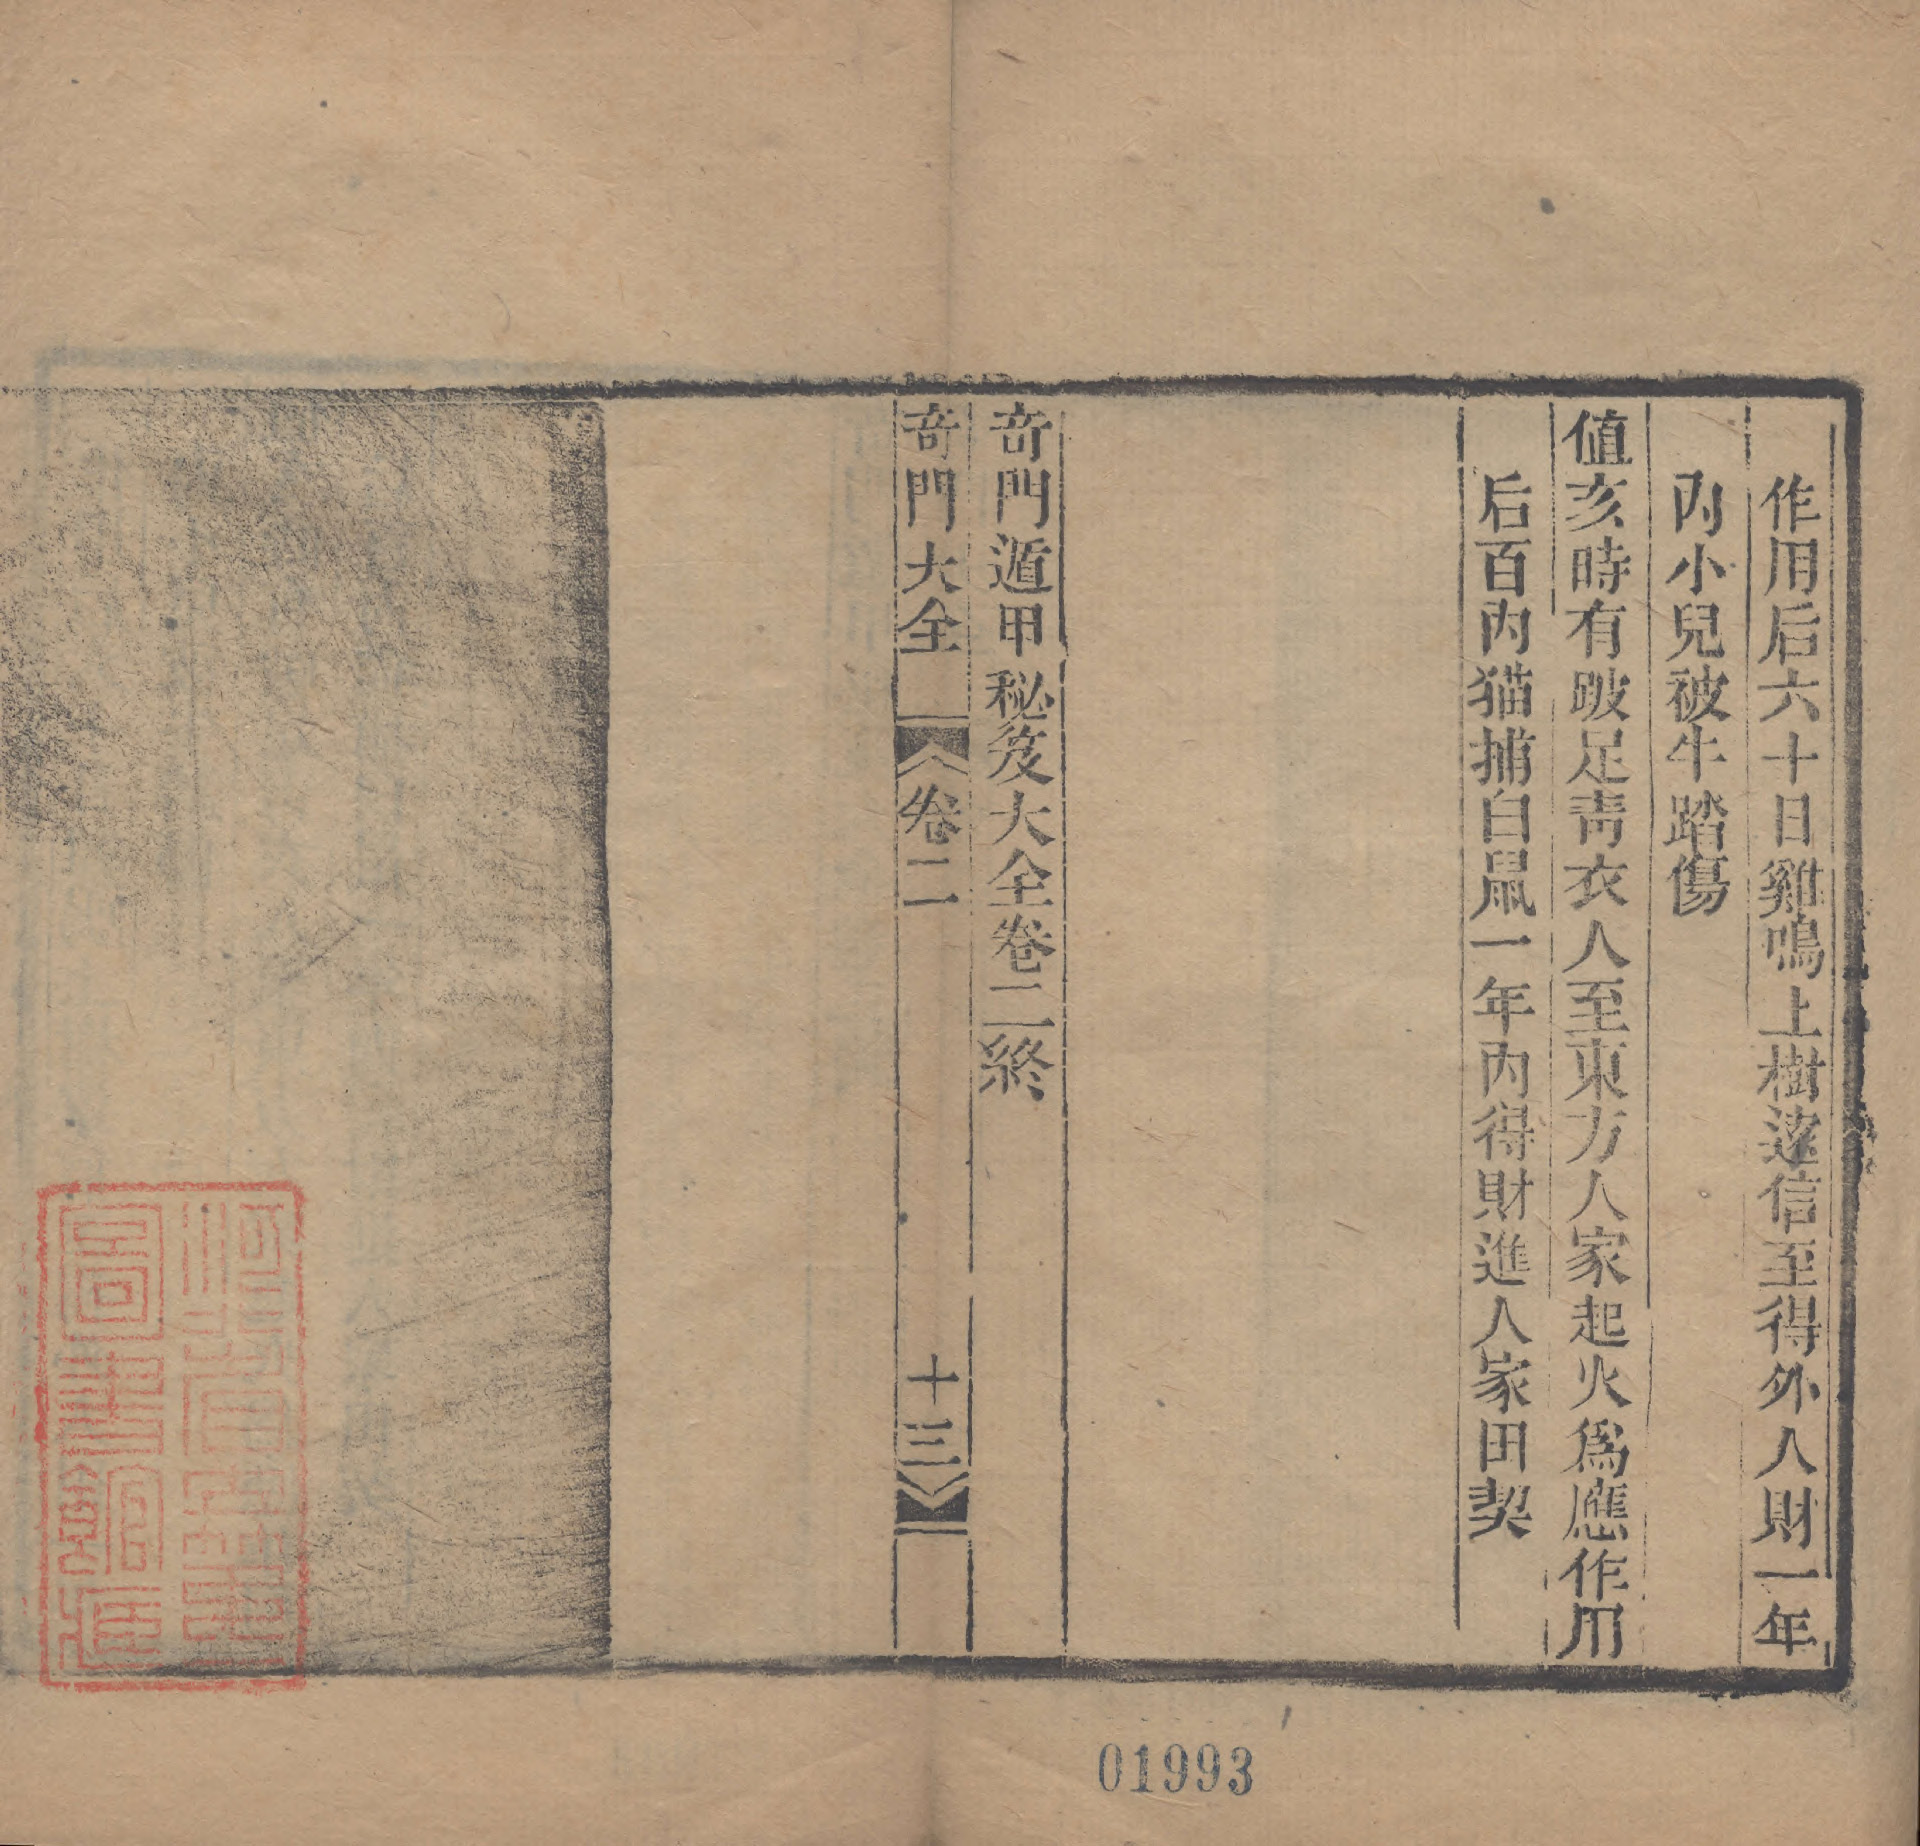 作用后六十日雞鳴上樹遠信至得外人財一年
內小兒被牛踏傷
值亥時有跛足靑衣人至東方人家起火爲應作用
后百內猫捕白鼠一年內得財進人家田契
奇門遁甲秘笈大全卷二終
奇門大全 卷二 十三
圖書館藏
01993